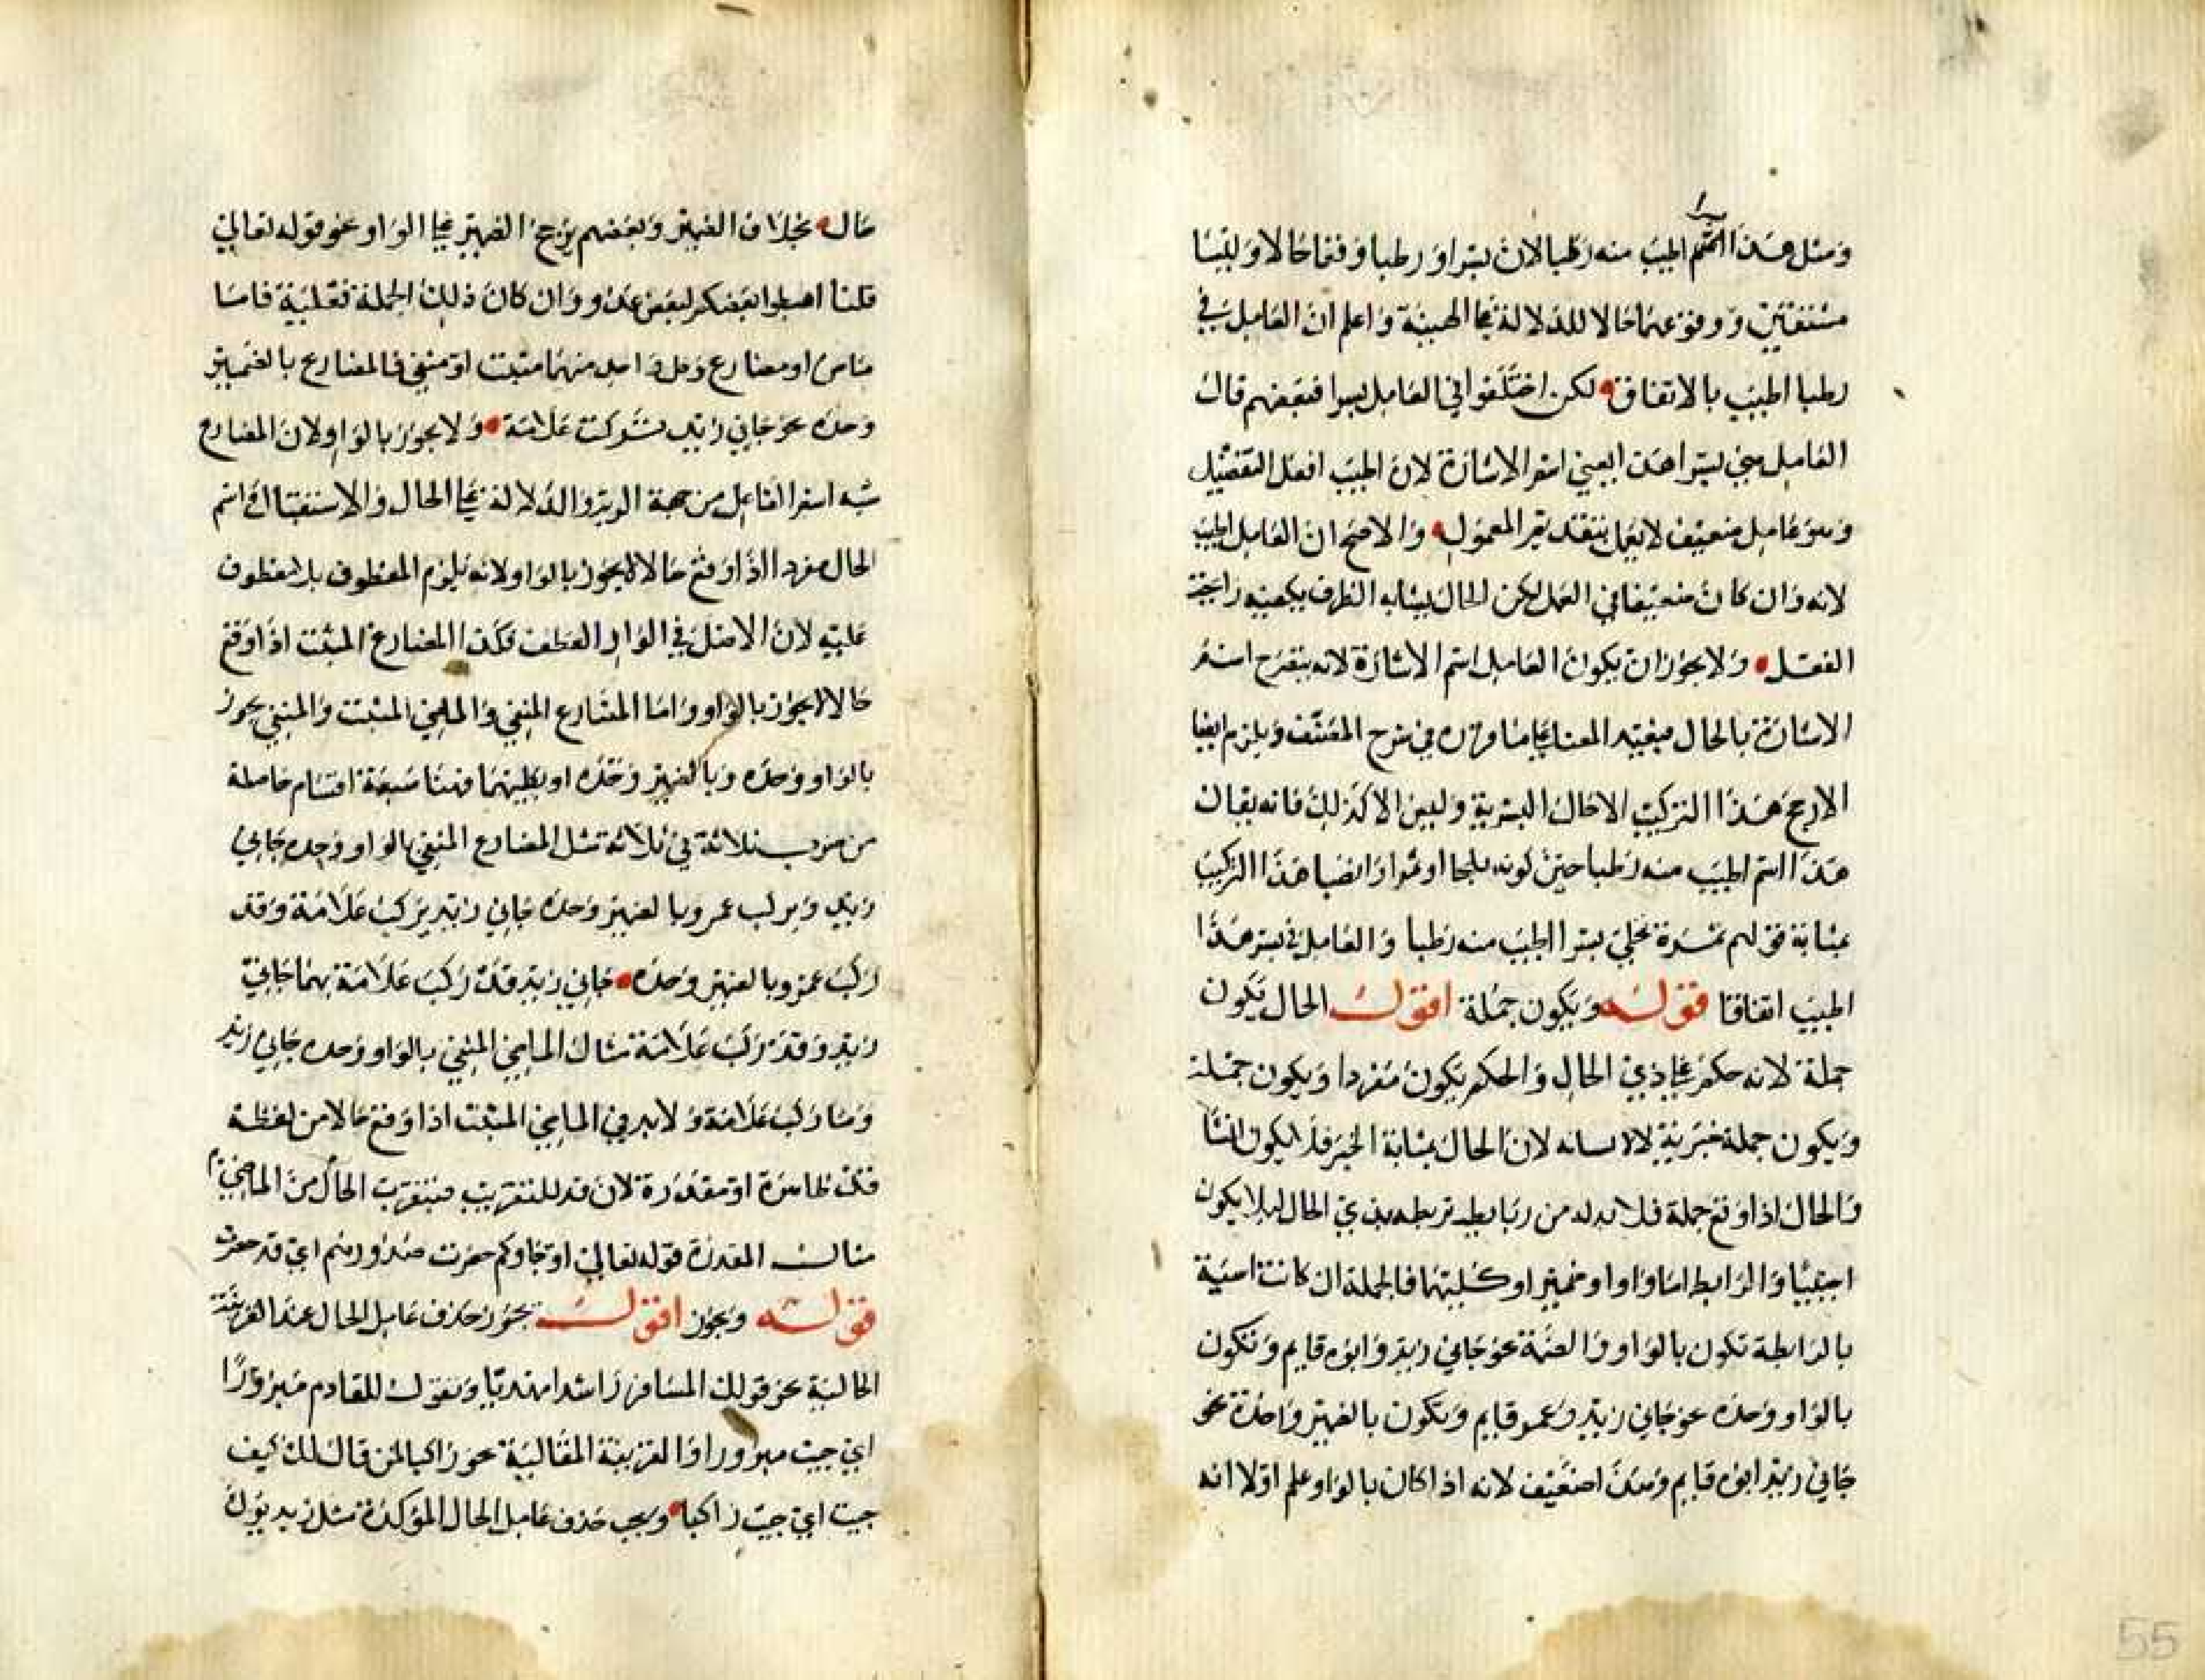 ومثل هذا التمر اطيب منه رطبا لان بسرا ورطبا وقعا حالا وليسا
مشتقين ووقوعهما حالا للدلالة على الهيئة واعلم ان العامل في
رطبا اطيب بالاتفاق لكن اختلفوا في العامل بسرا فبعضهم قال
العامل في بسرا هذا يعني اسم الاشارة لان اطيب افعل التفضيل
وهو عامل ضعيف لا يعمل بتقديم المعمول والاصح ان العامل اطيب
لانه وان كان ضعيفا في العمل لكن الحال يشابه الظرف يكفيه رايحة
الفعل ولا يجوز ان يكون العامل اسم الاشارة لانه يتقرح اسم
الاشارة بالحال فيقيد المعنا على ما في شرح المصنف ويلزم ايضا
الارجح هذا التركيب الا حال البسرية وليس الا كذلك فانه يقال
هذا اتم اطيب منه رطبا حين كونه بلحا او تمرا وايضا هذا التركيب
بمثابة قولهم تمرة نخلي بسرا اطيب منه رطبا والعامل في بسر هذا
اطيب اتفاقا قوله ويكون جملة اقول الحال تكون
جملة لانه حكم على ذي الحال والحكم يكون مفردا ويكون جملة
ويكون جملة خبرية لان الحال بمثابة الخبر فلا يكون انشا
والحال اذا وقع جملة فلا بد له من رابطه تربطه بذي الحال ليلا يكون
اجنبيا والرابط اما واوا او ضمير او كليهما فالجملة ان كانت اسمية
بالرابطة تكون بالواو والضمة نحو جاني زيد وابوه قايم وتكون
بالواو وحده نحو جاني زيد وعمرو قايم وتكون بالضمير واحدة نحو
جاني زيد ابوه قايم وهذا ضعيف لانه اذا كان بالواو علم اولا انه
حال بخلاف الضمير وبعضهم يرجح الضمير على الواو نحو قوله تعالى
قلنا اهبطوا بعضكم لبعض عدو وان كان ذلك الجملة فعلية فاما
ماض او مضارع وكل واحد منهما مثبت او منفي فالمضارع بالضمير
وحده نحو جاني زيد يركب غلامه ولا يجوز بالواو لان المضارع
شبه اسم الفاعل من جهة الوزن والدلالة على الحال والاستقبال واسم
الحال مفرد اذا وقع حالا لا يجوز بالواو لانه يلزم المعطوف بلا معطوف
عليه لان الاصل في الواو العطف فكذا المضارع المثبت اذا وقع
حالا لا يجوز بالواو واما المضارع المنفي والماضي المثبت والمنفي يجوز
بالواو وحده وبالضمير وحده او بكليهما فهنا سبعة اقسام حاصلة
من ضرب ثلاثة في ثلاثة مثل المضارع المنفي بالواو وحده جاني
زيد وير لب عمر وبا لضمير وحده جاني زيد يركب غلامه وقد
ركب عمرو بالضمير وحده جاني زيد قد ركب غلامه بهما جاني
زيد وقد ركب غلامه مثال الماضي المنفي بالواو وحده جاني زيد
وما ركب غلامه ولابد في الماضي المثبت اذا وقع حالا من لفظة
قد ظاهرة او مقدرة لان قد للتقريب فيتقرب الحال من الماضي
مثال المقدرة قوله تعالى او جاوكم حصرت صدورهم اي قد حصرت
قوله ويجوز اقول يجوز حذف عامل الحال عند القرينة
الحالية نحو قولك المسافر راشدا مهديا وتقول للقادم مبرورا
اي جيت مبرورا والقرينة المقالية نحو راكبا لمن قال لك كيف
جيت اي جيت راكبا ويجب حذف عامل الحال المؤكدة مثل زيد ابوك
55